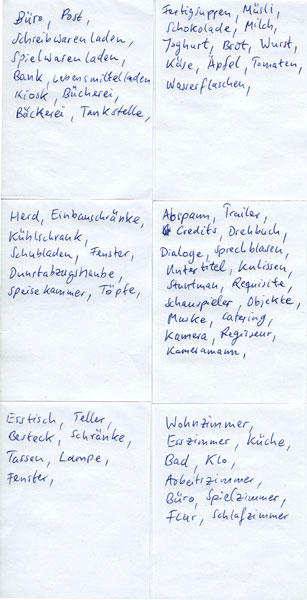 Büro, Post,
Schreibwarenladen,
Spielwarenladen,
Bank, Lebensmittelladen
Kiosk, Bücherei,
Bäckerei, Tankstelle,
Fertigsuppen, Müsli,
Schokolade, Milch,
Joghurt, Brot, Wurst,
Käse, Äpfel, Tomaten,
Wasserflaschen,
Herd, Einbauschränke,
Kühlschrank,
Schubladen, Fenster,
Dunstabzugshaube,
Speisekammer, Töpfe,
Abspann, Trailer,
Credits, Drehbuch,
Dialoge, Sprechblasen,
Untertitel, Kulissen,
Stuntman, Requisite,
Schauspieler, Objekte,
Maske, Catering,
Kamera, Regisseur,
Kameramann,
Esstisch, Teller,
Besteck, Schränke,
Tassen, Lampe,
Fenster,
Wohnzimmer,
Esszimmer, Küche,
Bad, Klo,
Arbeitszimmer,
Büro, Spielzimmer,
Flur, Schlafzimmer